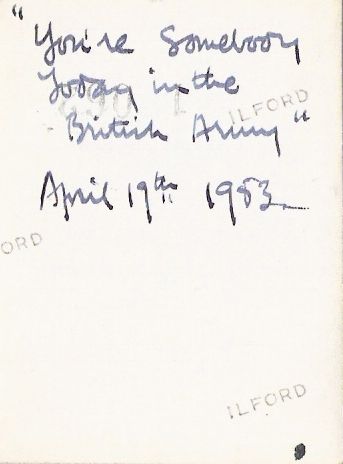 "You're Somebody
Today in the
ILFORD
British Army"
April 19th 1953
FORD
ILFORD